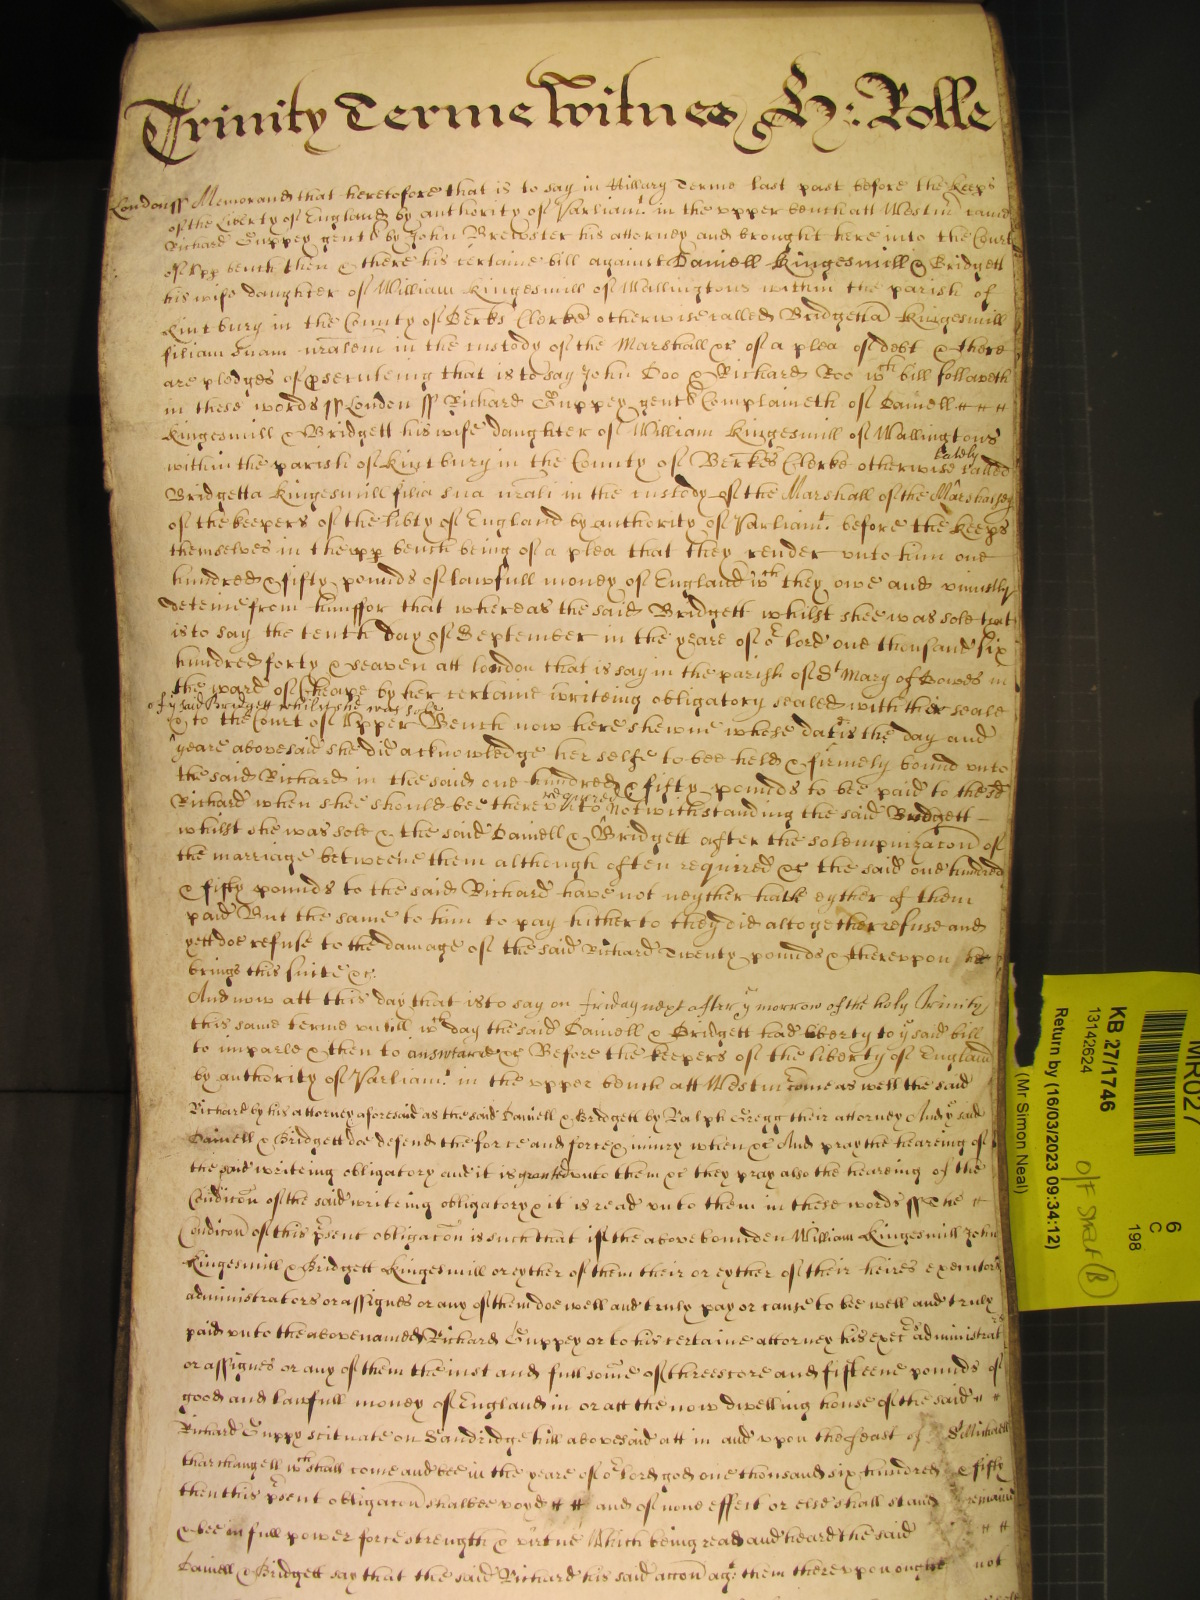 Trinity Terme Witnes H: Rolle
London ss Memorand that heretofore that is to say in Hillary Terme last past before the keeps
of the Liberty of England by authority of Parliamt. in the upper bench att Westm came
Richard Guppey gent by John Brewster his attorney and brought here into the Court
of upp bench then & there his certaine bill against Daniell Kingesmill & Bridgett
his wife daughter of William Kingesmill of Wallingtons within the parish of
Kintbury in the County of Berks Clerke otherwise called Bridgetta Kingesmill
filiam suam nralem in the custody of the Marshall &c of a plea of debt & there
are pledges of psecuteing that is to say John Doo & Richard Roo wch bill followeth
in these words ss London ss Richard Guppey gent Complaineth of Daniell
Kingesmill & Bridgett his wife daughter of William Kingesmill of Wallingtons
within the parish of Kintbury in the County of Berkes Clerke otherwise lately called
Bridgetta Kingesmill filia sua nrali in the custody of the Marshall of the Marshalsey
of the keepers of the libty of England by authority of Parliamt. before the keeps
themselves in the upp bench being of a plea that they render unto him one
hundred & fifty pounds of lawfull money of England wch they owe and uniustly
deteine from him ffor that whereas the said Bridgett whilst shee was sole that
is to say the tenth day of September in the yeare of or lord one thousand six
hundred forty & seaven att london that is say in the parish of St Mary of Bowes in
the ward of Cheape by her certaine writeing obligatory sealed with the seale
of ye said Bridgett whilst she was sole
& to the Court of Upper Bench now here shewne whose date is the day and
yeare abovesaid she did acknowledge her selfe to bee held & firmely bound unto
the said Richard in the said one hundred & fifty pounds to bee paid to the sd
Richard when shee should bee thereunto required Notwithstanding the said Bridgett
whilst she was sole & the said Daniell & Bridgett after the solempnizacon of
the marriage betweene them although often required &c the said one hundred
& fifty pounds to the said Richard have not neyther hath eyther of them
paid But the same to him to pay hitherto they did altogether refuse and
yett doe refuse to the damage of the said Richard Twenty pounds & thereupon he
brings this suite &c.
And now att this day that is to say on Friday next after ye morrow of the holy Trinity
this same terme untill wch day the said Daniell & Bridgett had liberty to ye said bill
to imparle & then to answeare &c Before the keepers of the liberty of England
by authority of Parliamt. in the upper bench att Westm come as well the said
Richard by his attorney aforesaid as the said Daniell & Bridgett by Ralph Gregg their attorney And ye said
Daniell & Bridgett doe defend the force and iniury when &c And pray the heareing of
the said writeing obligatory and it is granted unto them &c they pray also the heareing of the
Condicon of the said writeing obligatory & it is read unto them in these words ss The
Condicon of this psent obligacon is such that if the above bounden William Kingesmill John
Kingesmill & Bridgett Kingesmill or eyther of them their or eyther of their heires executors
administrators or assignes or any of them doe well and truly pay or cause to bee well and truly
paid unto the above named Richard Guppey or to his certaine attorney his execrs administratrs
or assignes or any of them the iust and full some of threescore and fifteene pounds of
good and lawfull money of England in or att the now dwelling house of the said
Richard Guppy scituate on Sandridge hill abovesaid att in and upon the feast of St Michaell
tharchangell wch shall come and bee in the yeare of or lord god one thousand six hundred & fifty
then this psent obligacon shalbee voyd and of none effect or else shall stand remaine
& bee in full power force strength & virtue Which being read and heard the said
Daniell & Bridgett say that the said Richard his said accon agt them thereupon ought not
MR027
6
C
198
KB 27/1746
13142624
O/F Sheet (B)
Return by (16/03/2023 09:34:12)
(Mr Simon Neal)